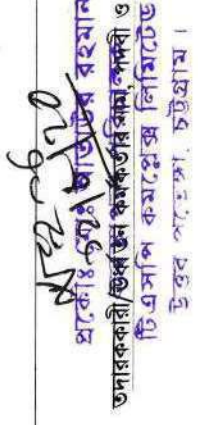 প্রকৌঃ মোঃ আতাউর রহমান
তদারককারী/উর্ধ্বতন কর্মকর্তার নাম, পদবী ও
টিএসপি কমপ্লেক্স লিমিটেড
উত্তর পতেঙ্গা, চট্টগ্রাম।